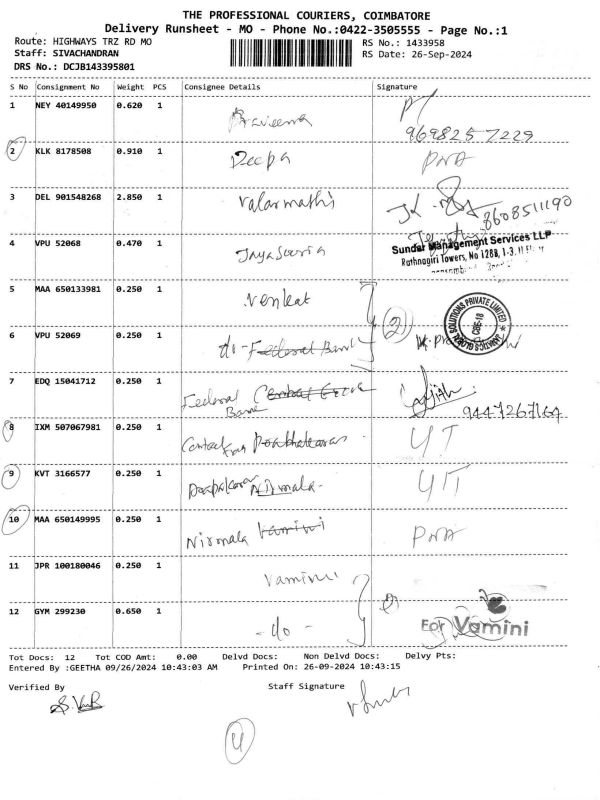 THE PROFESSIONAL COURIERS, COIMBATORE
Delivery Runsheet - MO - Phone No.:0422-3505555 - Page No.:1
Route: HIGHWAYS TRZ RD MO
RS No.: 1433958
Staff: SIVACHANDRAN
RS Date: 26-Sep-2024
DRS No.: DCJB143395801
S No Consignment No Weight PCS Consignee Details Signature
1 NEY 40149950 0.620 1 Praveena
9698257229
2 KLK 8178508 0.910 1 Deepa PNA
3 DEL 901548268 2.850 1 Valarmathi
8608511190
4 VPU 52068 0.470 1 Jayasooria
Sundar Management Services LLP
Rathnagiri Towers, No 128B, 1-3,
5 MAA 650133981 0.250 1 Venkat
2
SOLUTIONS PRIVATE LIMITED
CBE-18
6 VPU 52069 0.250 1 do Federal Bank
7 EDQ 15041712 0.250 1 Federal Bank
9447267164
8 IXM 507067981 0.250 1 UT
9 KVT 3166577 0.250 1 Nirmala UT
10 MAA 650149995 0.250 1 Nirmala Vamini PNA
11 JPR 100180046 0.250 1 Vamini
12 GYM 299230 0.650 1 - do -
For Vamini
Tot Docs: 12 Tot COD Amt: 0.00 Delvd Docs: Non Delvd Docs: Delvy Pts:
Entered By :GEETHA 09/26/2024 10:43:03 AM Printed On: 26-09-2024 10:43:15
Verified By Staff Signature
4